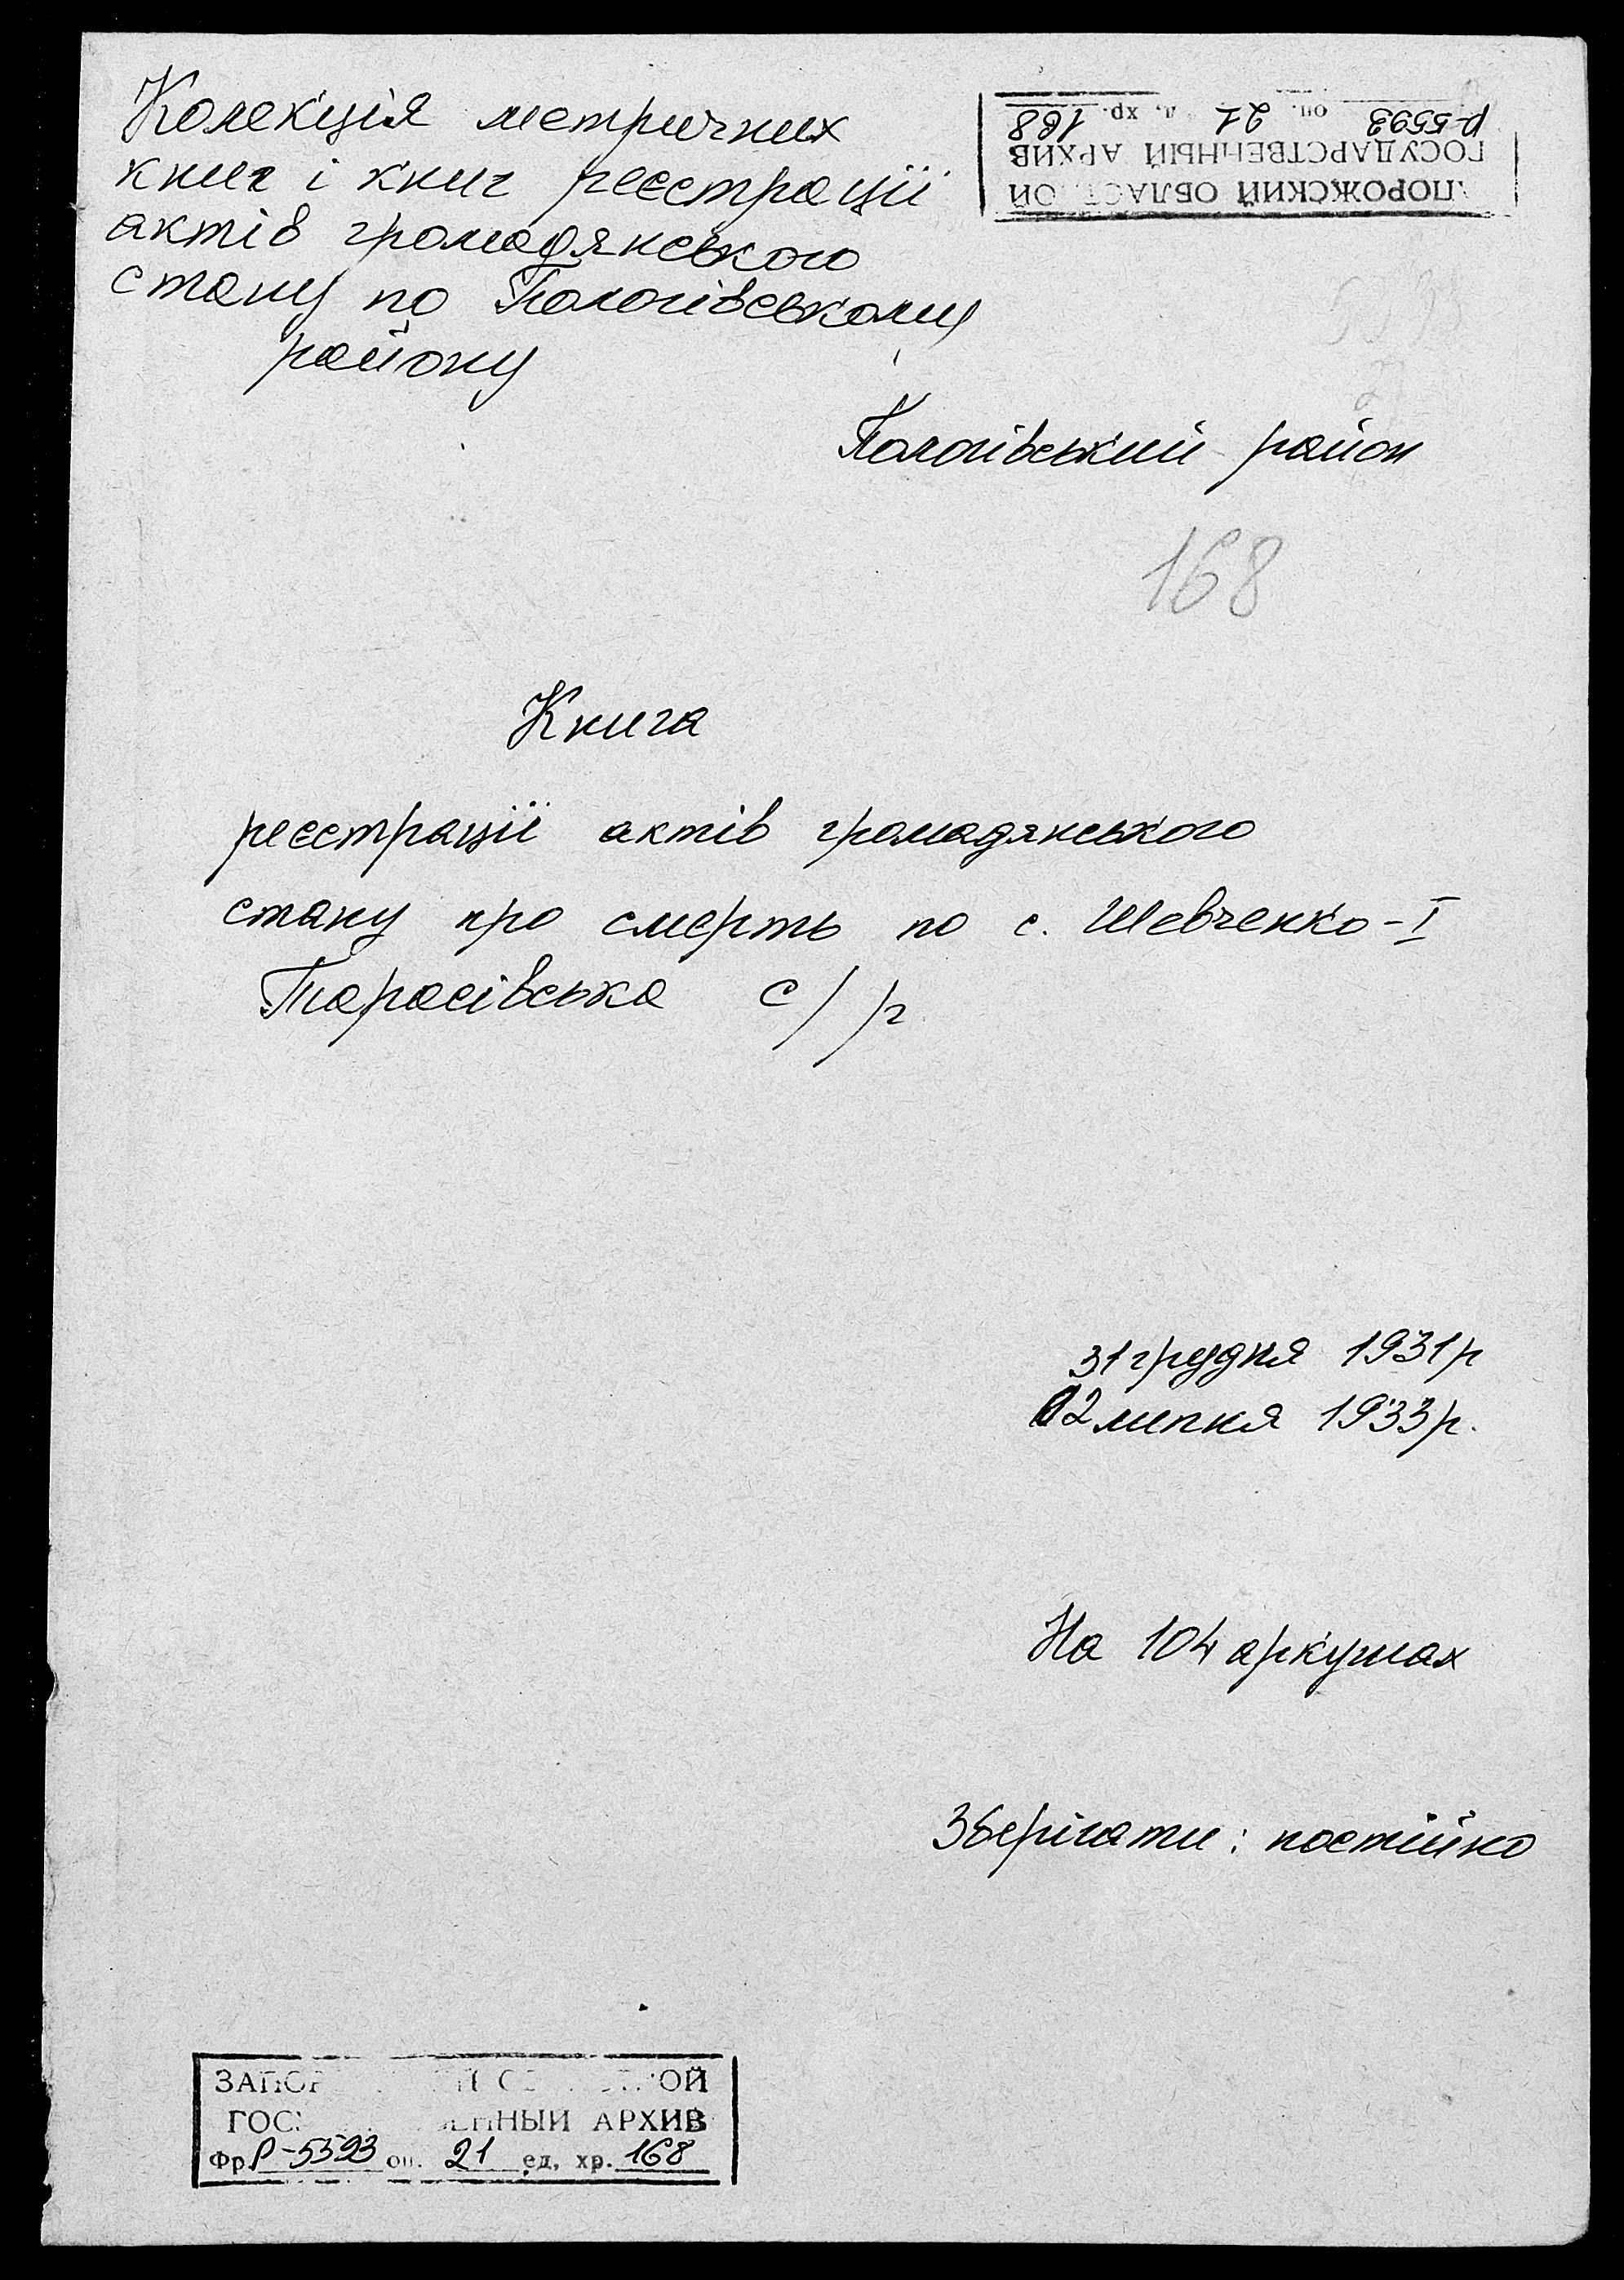 Колекція метричних
книг і книг реєстрації
актів громадянського
стану по Пологівському
району
ПОРОЖСКИЙ ОБЛАСТНОЙ
ГОСУДАРСТВЕННЫЙ АРХИВ
Р-5593 оп. 21 д. хр. 168
Пологівський район
168
Книга
реєстрації актів громадянського
стану про смерть по с. Шевченко-I
Тарасівська с/р
31 грудня 1931р
02 липня 1933р.
На 104 аркушах
Зберігати: постійно
ЗАПОР ОЙ
ГОС ЕННЫЙ АРХИВ
Фр Р-5593 оп. 21 ед. хр. 168